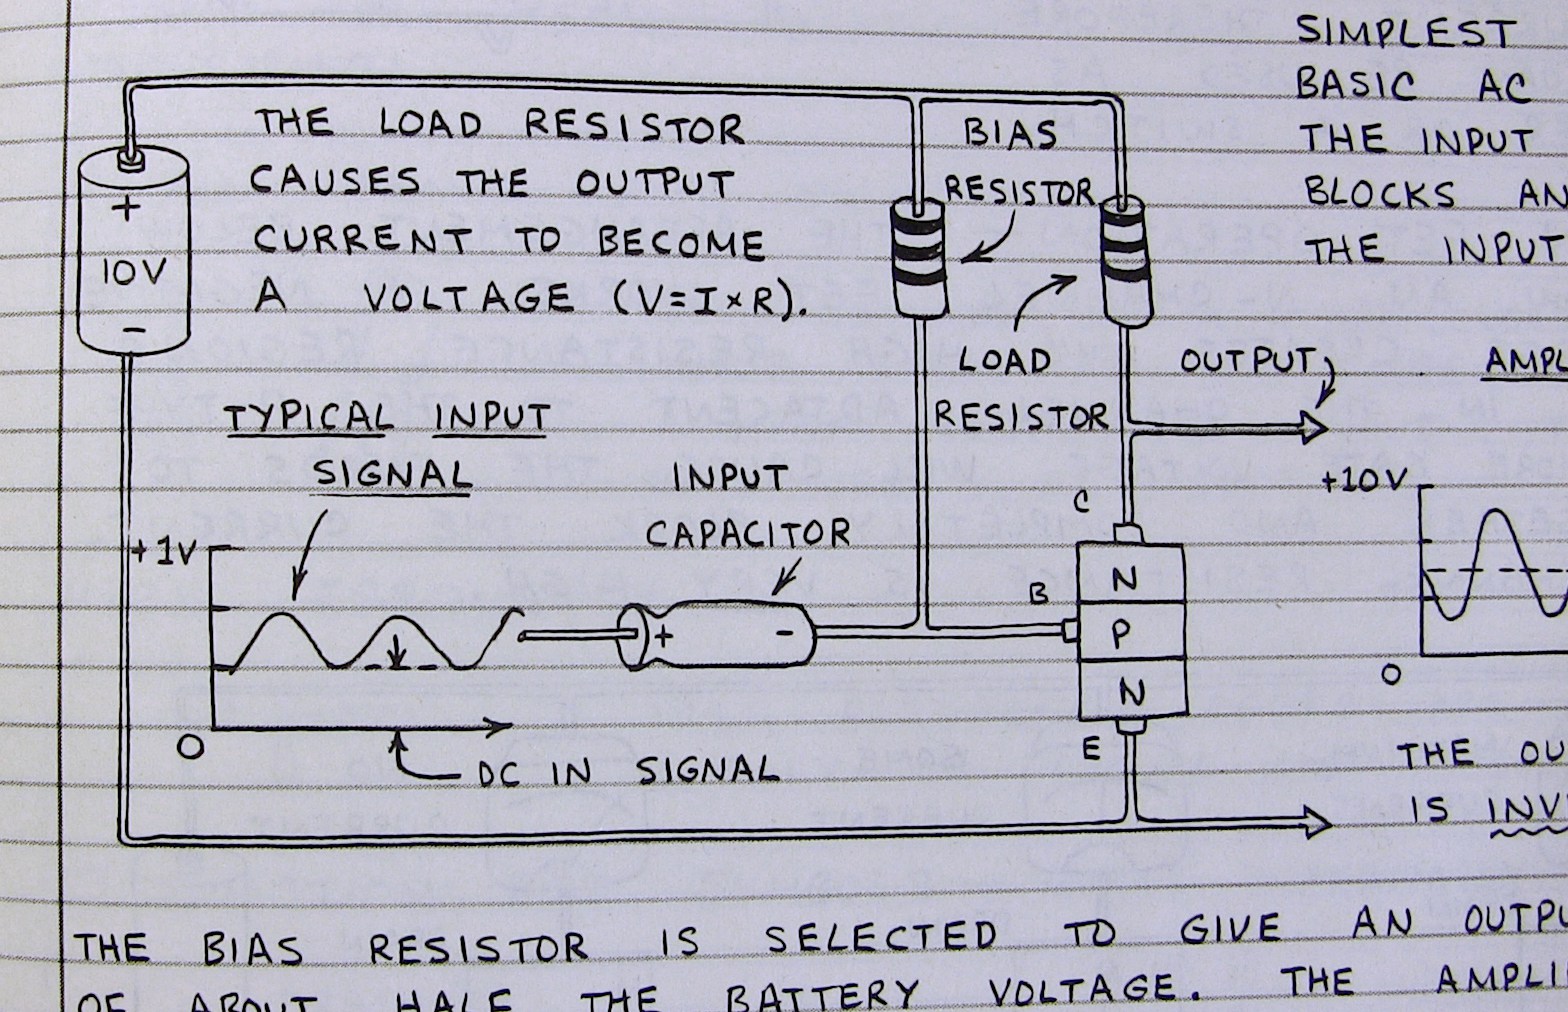 SIMPLEST
BASIC AC
THE INPUT
BLOCKS AN
THE INPUT
THE LOAD RESISTOR
CAUSES THE OUTPUT
CURRENT TO BECOME
A VOLTAGE (V=I×R).
BIAS
RESISTOR
+
10V
-
LOAD
RESISTOR
OUTPUT
AMPL
TYPICAL INPUT
SIGNAL
INPUT
CAPACITOR
+10V
C
+1V
N
B
+ -
P
N
O
O
E
DC IN SIGNAL
THE OU
IS INV
THE BIAS RESISTOR IS SELECTED TO GIVE AN OUTPU
OF ABOUT HALF THE BATTERY VOLTAGE. THE AMPLI